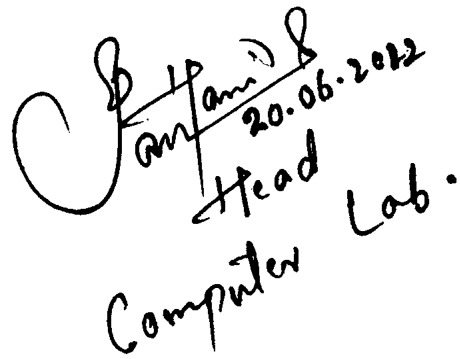 20.06.2012
Head
Computer Lab.